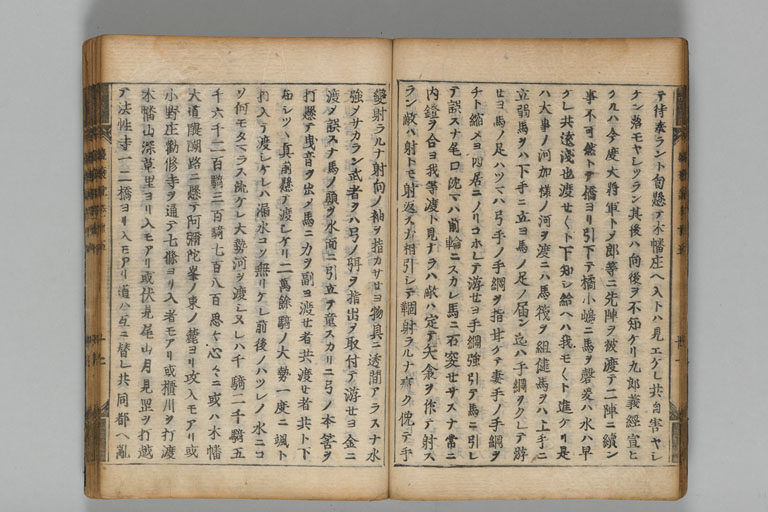 テ待奉ラント自懸テ木幡庄ヘ入トハ見エケレ共自害ヤシ
ケン落モヤシツラン其後ハ向後ヲ不知ケリ九郎義經宣ヒ
クルハ今度大將軍トノ郎等ニ先陣ヲ被渡テ二陣ニ續ン
事不可然トテ橋ヨリ引下テ橘小嶋ニ馬ヲ磬愛ハ水ハ早
クレ共遠淺也渡せくト下知シ給ヘハ我モくト進ケリ是
ハ大事ノ河加樣ノ河ヲ渡ニハ馬筏ヲ組健馬ヲハ上手ニ
立弱馬ヲハ下手ニ立ヨ馬ノ足ノ届ン迄ハ手綱ヲクレテ游
せヨ馬ノ足ハツマハ弓手ノ手綱ヲ指甘ケ妻手ノ手綱ヲ
チト縮メヨ四居ニノリコホレテ游せヨ手綱強引テ馬ニ引レ
テ誤スナ尾口沈マハ前輪ニスカレ馬ニ石突せサスナ常ニ
内鐙ヲ合ヨ我等渡ト見ナラハ敵ハ定テ矢衾ヲ作テ射ス
ラン敵ハ射トモ射返スナ相引シテ
變射ラルナ射向ノ袖ヲ指カサせヨ物具ニ透間アラスナ水
強シサカラン武者ヲハ弓ノ弭ヲ指出ヲ取付テ游せヨ金ニ
渡ツ誤スナ馬ノ頭ヲ水面ニ引立テ童スカリニ弓ノ本筈ヲ
打懸テ曳音ヲ出メ馬ニ力ヲ副ヨ渡せ者共渡せ者共ト下
知シツヽ眞前懸テ渡シケリ二萬餘騎ノ大勢一度ニ颯ト
打入テ渡シケレハ漏水コソ無リケレ前後ノハツレノ水ニコ
ソ何モタマラス流ケレ大勢河ヲ渡シヌレハ千騎二千騎五
千六千二百騎三百騎七百八百思々心々ニ或ハ木幡
大道醍醐路ニ懸テ阿彌陀峯ノ東ノ麓ヨリ攻入モアリ或
小野庄勸修寺ヲ通テ七條ヨリ入者モアリ或櫃川ヲ打渡
木幡山深草里ヨリ入モアリ或伏見尾山月見罡ヲ打越
テ法性寺一二橋ヨリ入モアリ道ハ互ニ替レ共同都ヘ亂